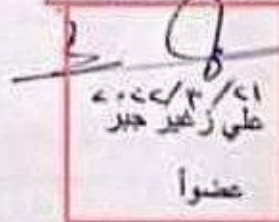 ٢٠٢٢/٣/٢١
علي زغير جبر
عضواً